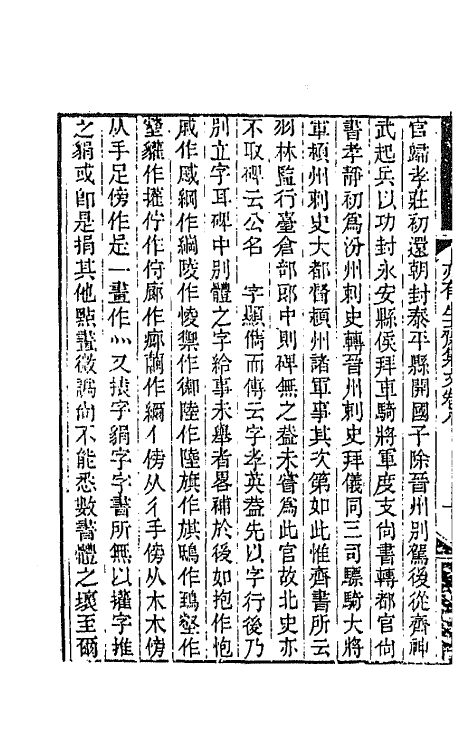 官歸孝莊初還朝封泰平縣開國子除晉州別駕後從齊神
武起兵以功封永安縣侯拜車騎將軍度支尙書轉都官尙
書孝靜初爲汾州刺史轉晉州刺史拜儀同三司驃騎大將
軍潁州刺史大都督潁州諸軍事其次第如此惟齊書所云
羽林監行臺倉部郎中則碑無之葢未嘗爲此官故北史亦
不取碑云公名 字顯儁而傳云字孝英葢先以字行後乃
別立字耳碑中別體之字給事未舉者畧補於後如抱作怉
戚作 綱作 陵作 禦作御陸作 旗作 鴟作鵄壑作
壡 作 佇作 廊作 作 亻傍从彳手傍从木木傍
从手足傍作 一畫作灬又 字 字字書所無以 字推
之 或卽是捐其他點畫微譌尙不能悉數書體之壞至爾